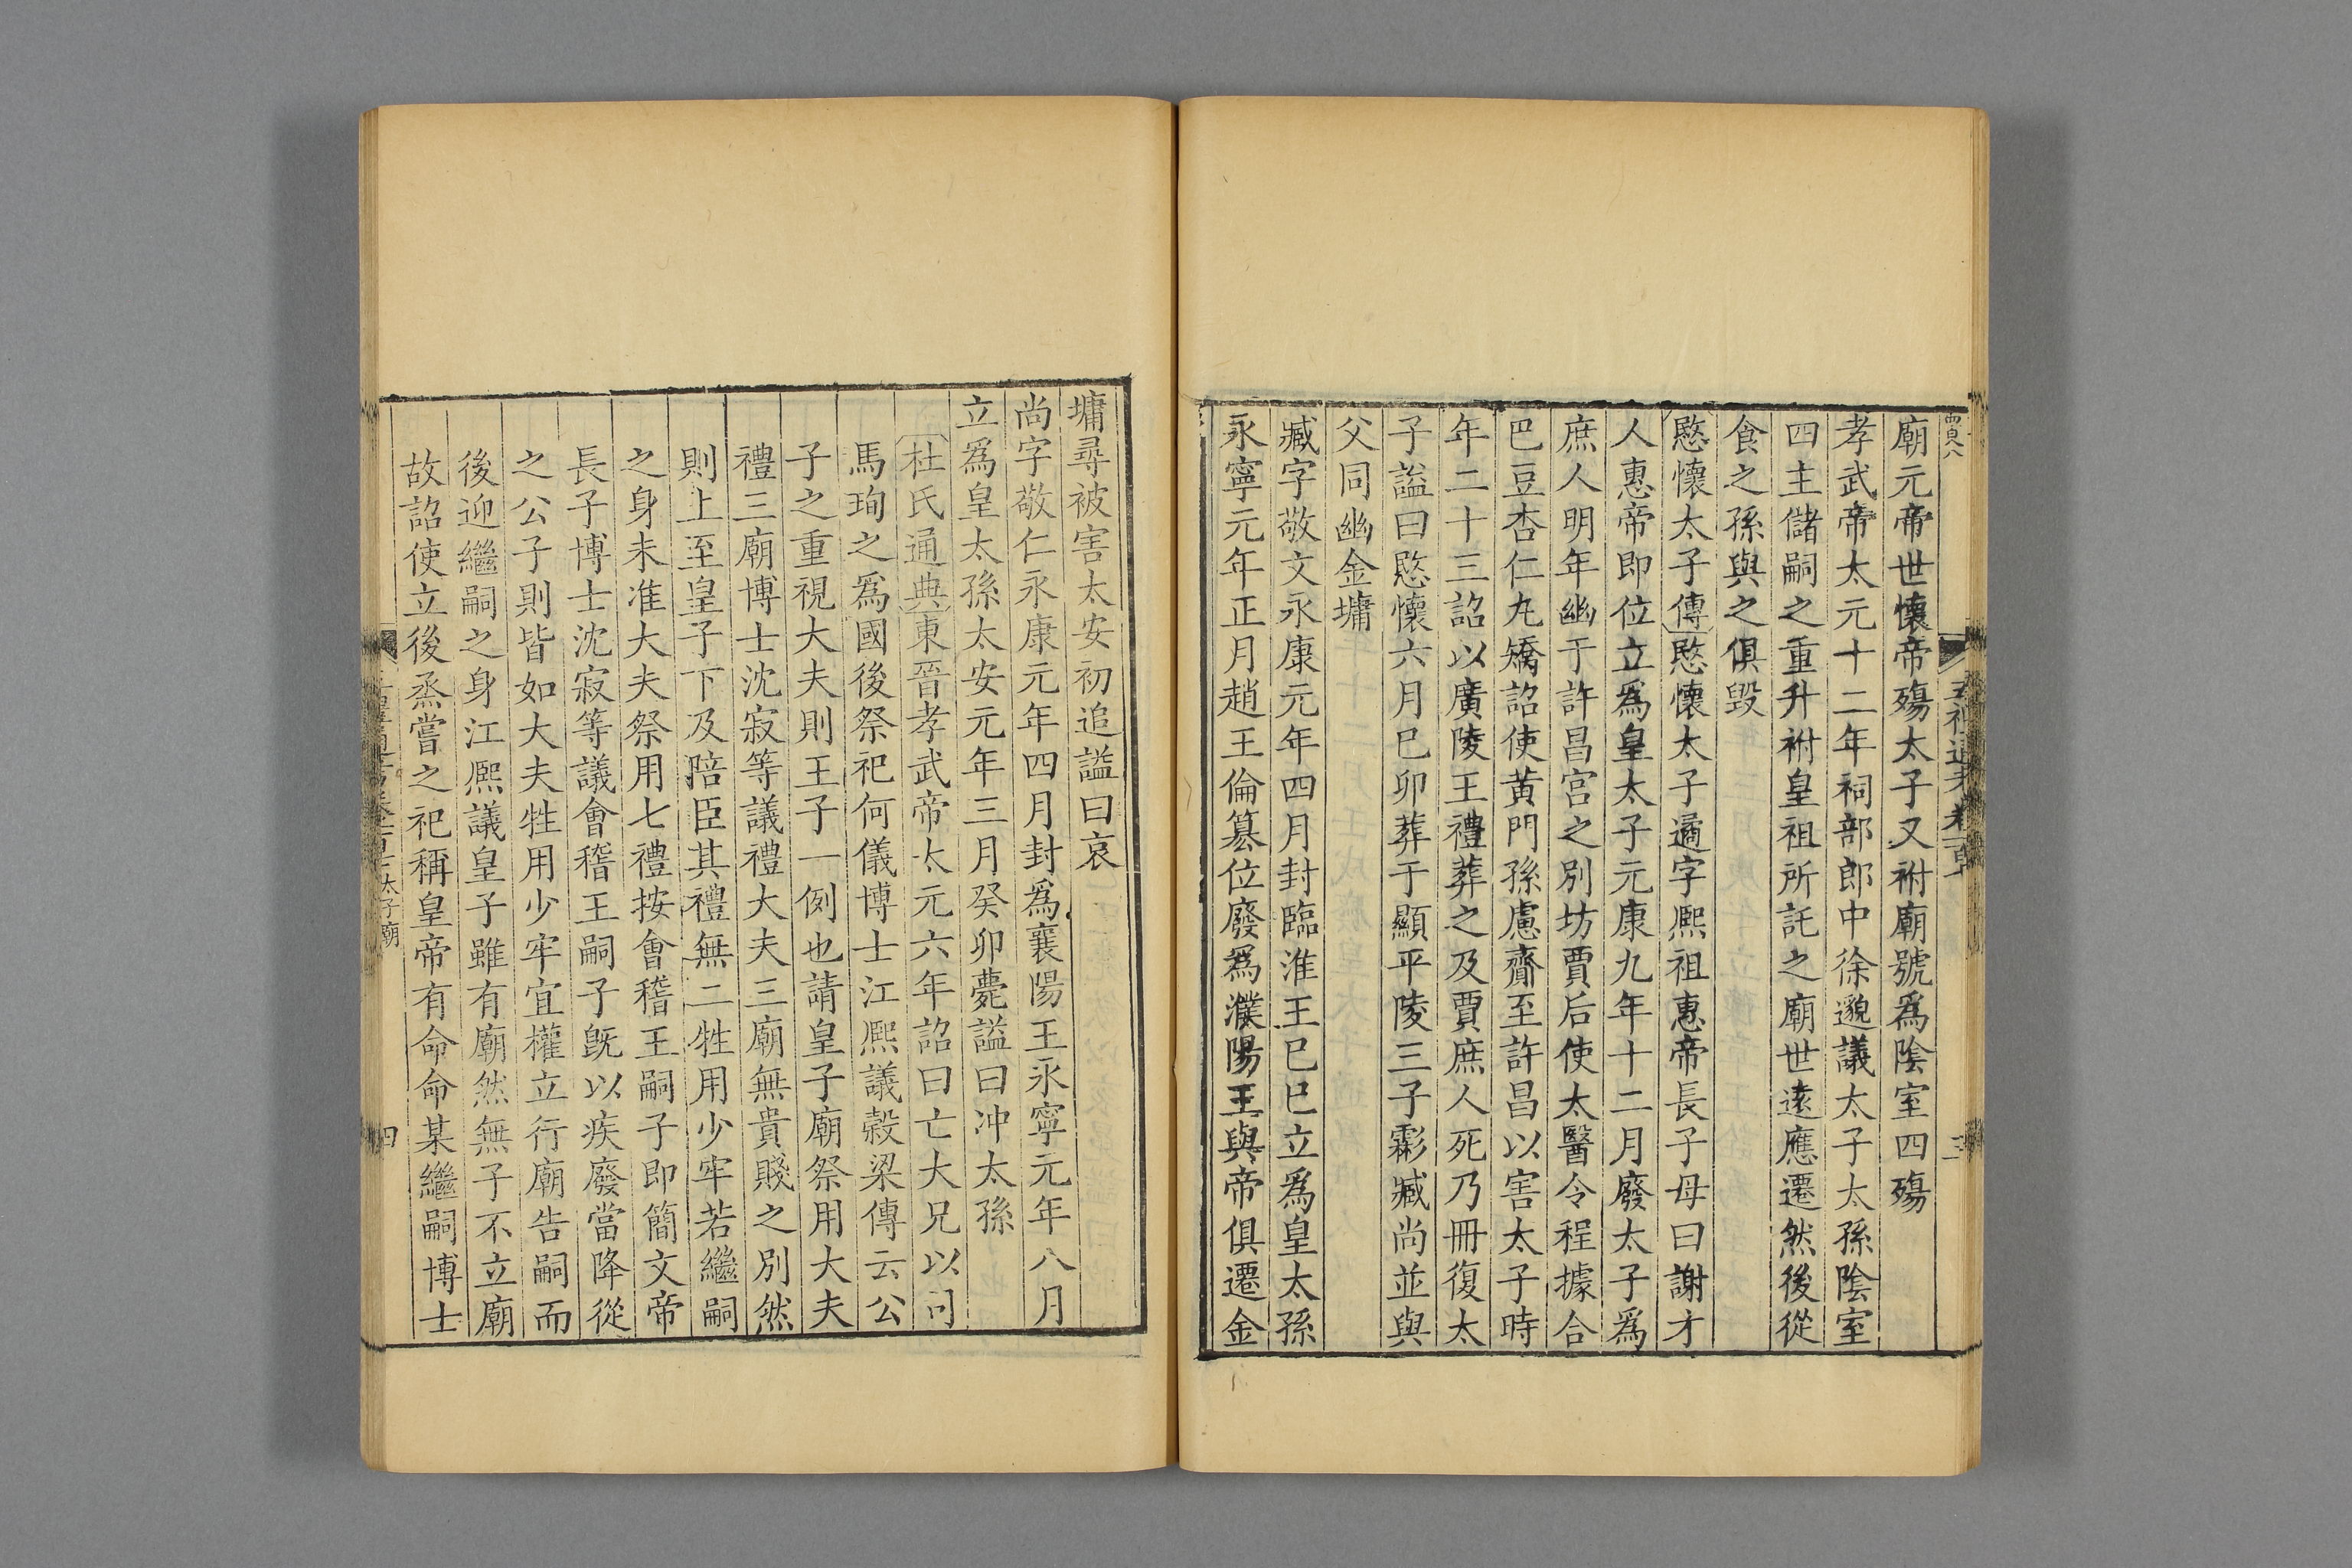 廟元帝世懷帝殤太子又祔廟號爲陰室四殤
孝武帝太元十二年祠部郎中徐邈議太子太孫陰室
四主儲嗣之重升祔皇祖所託之廟世遠應遷然後從
食之孫與之俱毀
愍懷太子傳愍懷太子遹字熙祖惠帝長子母曰謝才
人惠帝即位立爲皇太子元康九年十二月廢太子爲
庶人明年幽于許昌宮之別坊賈后使太醫令程據合
巴豆杏仁丸矯詔使黃門孫慮齎至許昌以害太子時
年二十三詔以廣陵王禮葬之及賈庶人死乃冊復太
子謚曰愍懷六月己卯葬于顯平陵三子虨臧尚並與
父同幽金墉
臧字敬文永康元年四月封臨淮王己巳立爲皇太孫
永寧元年正月趙王倫簒位廢爲濮陽王與帝俱遷金
墉尋被害太安初追謚曰哀
尚字敬仁永康元年四月封爲襄陽王永寧元年八月
立爲皇太孫太安元年三月癸卯薨謚曰沖太孫
杜氏通典東晉孝武帝太元六年詔曰亡大兄以司
馬珣之爲國後祭祀何儀博士江熙議穀梁傳云公
子之重視大夫則王子一例也請皇子廟祭用大夫
禮三廟博士沈寂等議禮大夫三廟無貴賤之別然
則上至皇子下及陪臣其禮無二牲用少牢若繼嗣
之身未准大夫祭用士禮按會稽王嗣子即簡文帝
長子博士沈寂等議會稽王嗣子旣以疾廢當降從
之公子則皆如大夫牲用少牢宜權立行廟告嗣而
後迎繼嗣之身江熙議皇子雖有廟然無子不立廟
故詔使立後烝嘗之祀稱皇帝有命命某繼嗣博士
太子廟
四